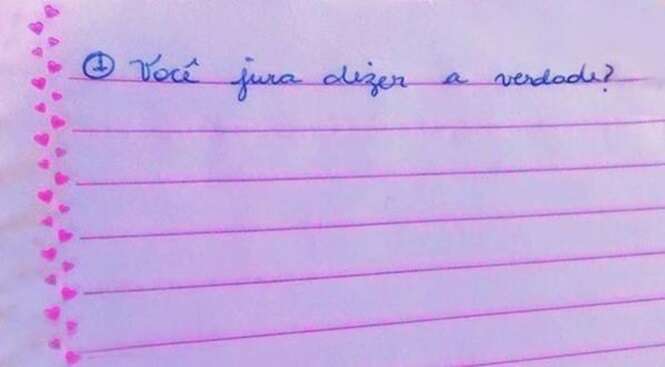 ① Você jura dizer a verdade?